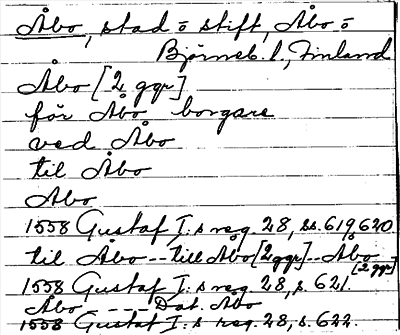 Åbo, stad o stift, Åbo o
Björneb. l., Finland
Åbo [2 ggr]
för Åbo borgare
ved Åbo
til Åbo
Abo
1558 Gustaf I:s reg. 28, ss. 619, 620.
til Åbo -- till Åbo [2 ggr] -- Åbo [2 ggr]
1558 Gustaf I:s reg. 28, s. 621.
Åbo ---- Dat. Åbo
1558 Gustaf I:s reg. 28, s. 622.